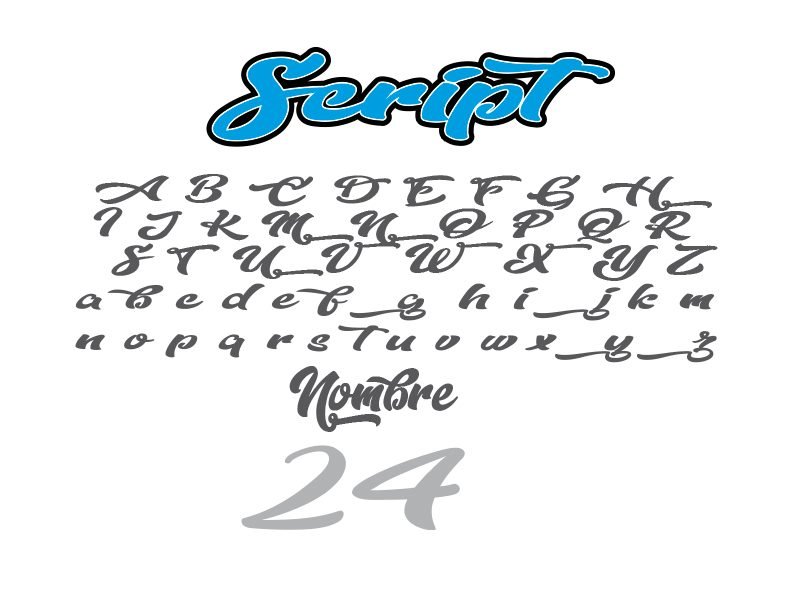 Script
A B C D E F G H
I J K M N O P Q R
S T U V W X Y Z
a b c d e f g h i j k m
n o p q r s t u v w x y z
Nombre
24